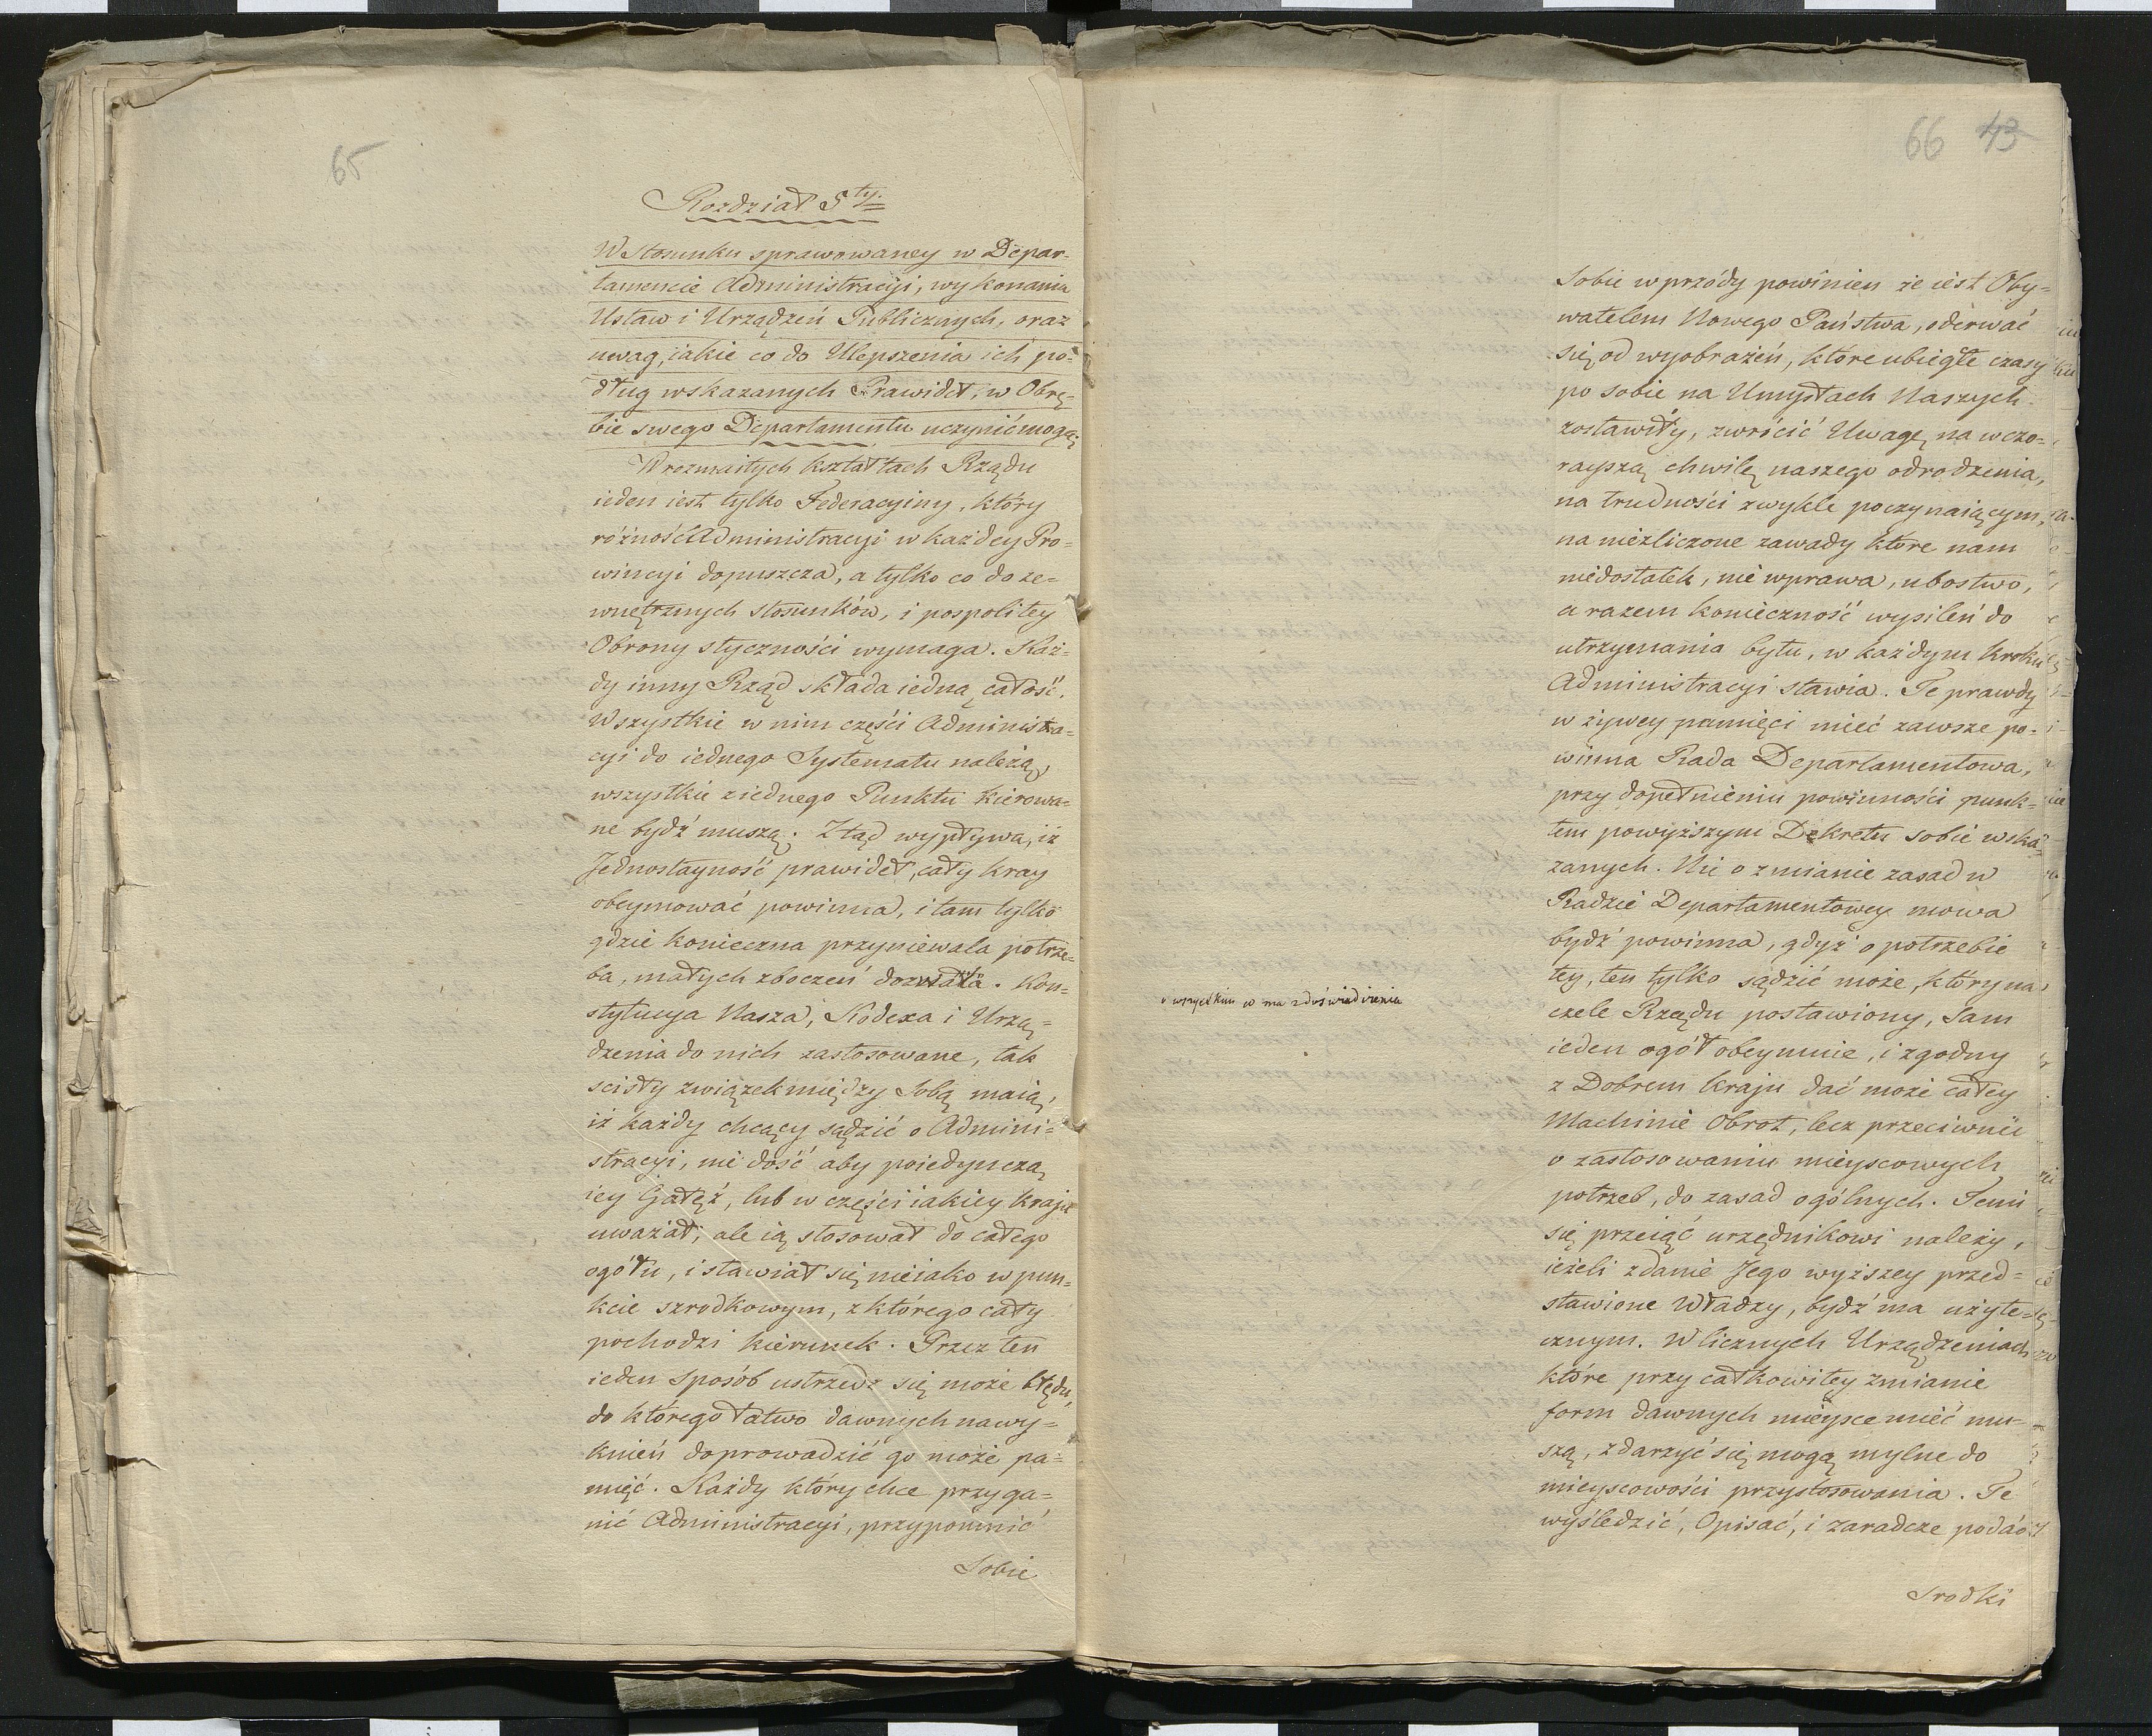 65
Rozdział 5ty.
W Stosunku sprawowaney w Depar-
tamencie Administracyi, wykonania
Ustaw i Urządzeń Publicznych, oraz
uwag, iakie co do Ulepszenia ich po-
dług wskazanych Prawideł, w Obrę-
bie swego Departamentu uczynić mogą;
W rozmaitych kształtach Rządu
ieden iest tylko Federacyiny, który
różność Administracyi w każdey Pro-
wincyi dopuszcza, a tylko co do ze-
wnętrznych stosunków, i pospolitey
Obrony styczności wymaga. Każ-
dy inny Rząd składa iedną całość.
Wszystkie w nim części Administra-
cyi do iednego Systematu należą,
wszystkie z iednego Punktu kierowa-
ne bydź muszą. Ztąd wypływa, iż
Jednostayność prawideł, cały kray
obeymować powinna, i tam tylko
gdzie konieczna przyniewala potrze-
ba, małych zboczeń dozwala. Kon-
stytucya Nasza, Kodexa i Urzą-
dzenia do nich zastosowane, tak
scisły związek między Sobą maią,
iż każdy chcący sądzić o Admini-
stracyi, nie dość aby poiedynczą
iey Gałęź, lub w części iakiey kraju
uważał, ale ią stosował do całego
ogółu, i stawiał się nieiako w pun-
kcie szrodkowym, z którego cały
pochodzi kierunek. Przez ten
ieden Sposób ustrzedz się może błędu,
do którego łatwo dawnych nawy-
knień doprowadzić go może pa-
mięć. Każdy który chce przyga-
nić Administracyi, przypomnić
Sobie
66 43
Sobie wprzódy powinien że iest Oby-
watelem Nowego Państwa, oderwać
się od wyobrażeń, które ubiegłe czasy
po sobie na Umysłach Naszych
zostawiły, zwrócić Uwagę na wczo-
rayszą chwilę naszego odrodzenia,
na trudności zwykle poczynaiącym,
na niezliczone zawady które nam
niedostatek, nie wprawa, ubostwo,
a razem konieczność wysileń do
utrzymania bytu, w każdym kroku
Administracyi stawia. Te prawdy
w żywey pamięci mieć zawsze po-
winna Rada Departamentowa,
przy dopełnieniu powinności punk-
tem powyższym Dekretu sobie wska-
zanych. Nie o zmianie zasad w
Radzie Departamentowey mowa
bydź powinna, gdyż o potrzebie
tey, ten tylko sądzić może, który na
czele Rządu postawiony, Sam
ieden ogół obeymuie, i zgodny
z Dobrem kraju dać może całey
Machinie Obrot, lecz przeciwnie
o zastosowaniu mieyscowych
potrzeb, do zasad ogólnych. Temi
się przeiąć urzędnikowi należy,
ieżeli zdanie Jego wyższey przed-
stawione Władzy, bydź ma użyte-
cznym. W licznych Urządzeniach
które przy całkowitey zmianie
form dawnych mieysce mieć mu-
szą, zdarzyć się mogą mylne do
mieyscowości przystosowania. Te
wyśledzić, Opisać, i zaradcze podać
Srodki